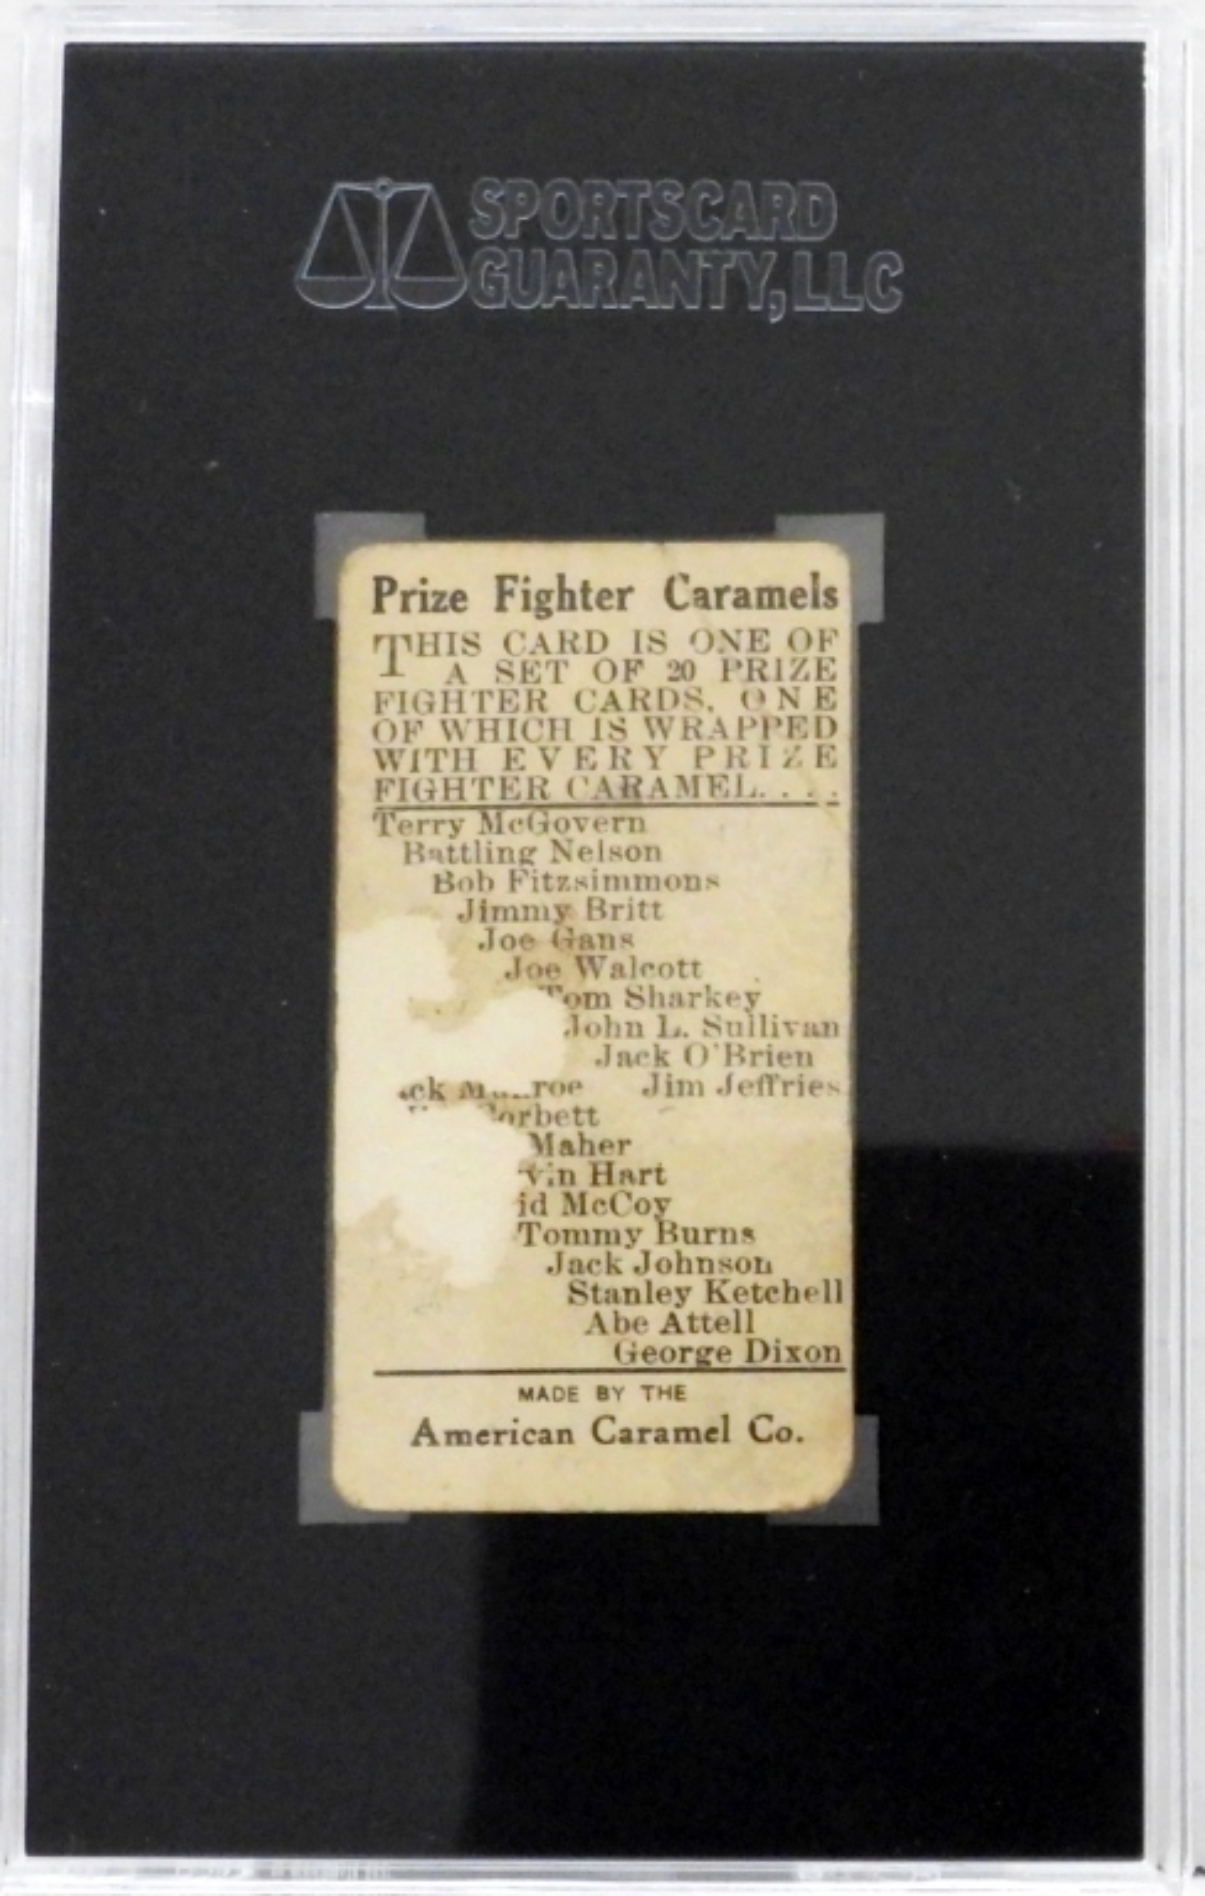 SPORTSCARD
GUARANTY, LLC
Prize Fighter Caramels
THIS CARD IS ONE OF
A SET OF 20 PRIZE
FIGHTER CARDS, ONE
OF WHICH IS WRAPPED
WITH EVERY PRIZE
FIGHTER CARAMEL....
Terry McGovern
Battling Nelson
Bob Fitzsimmons
Jimmy Britt
Joe Gans
Joe Walcott
Tom Sharkey
John L. Sullivan
Jack O'Brien
Jim Jeffries
Maher
Hart
McCoy
Tommy Burns
Jack Johnson
Stanley Ketchell
Abe Attell
George Dixon
MADE BY THE
American Caramel Co.